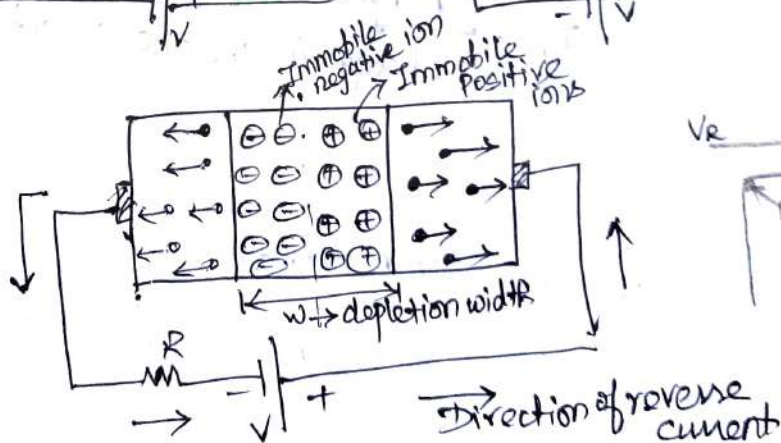 V
- V
Immobile
negative ion
Immobile
positive
ions
VR
W → depletion width
R
- +
V
Direction of reverse
current